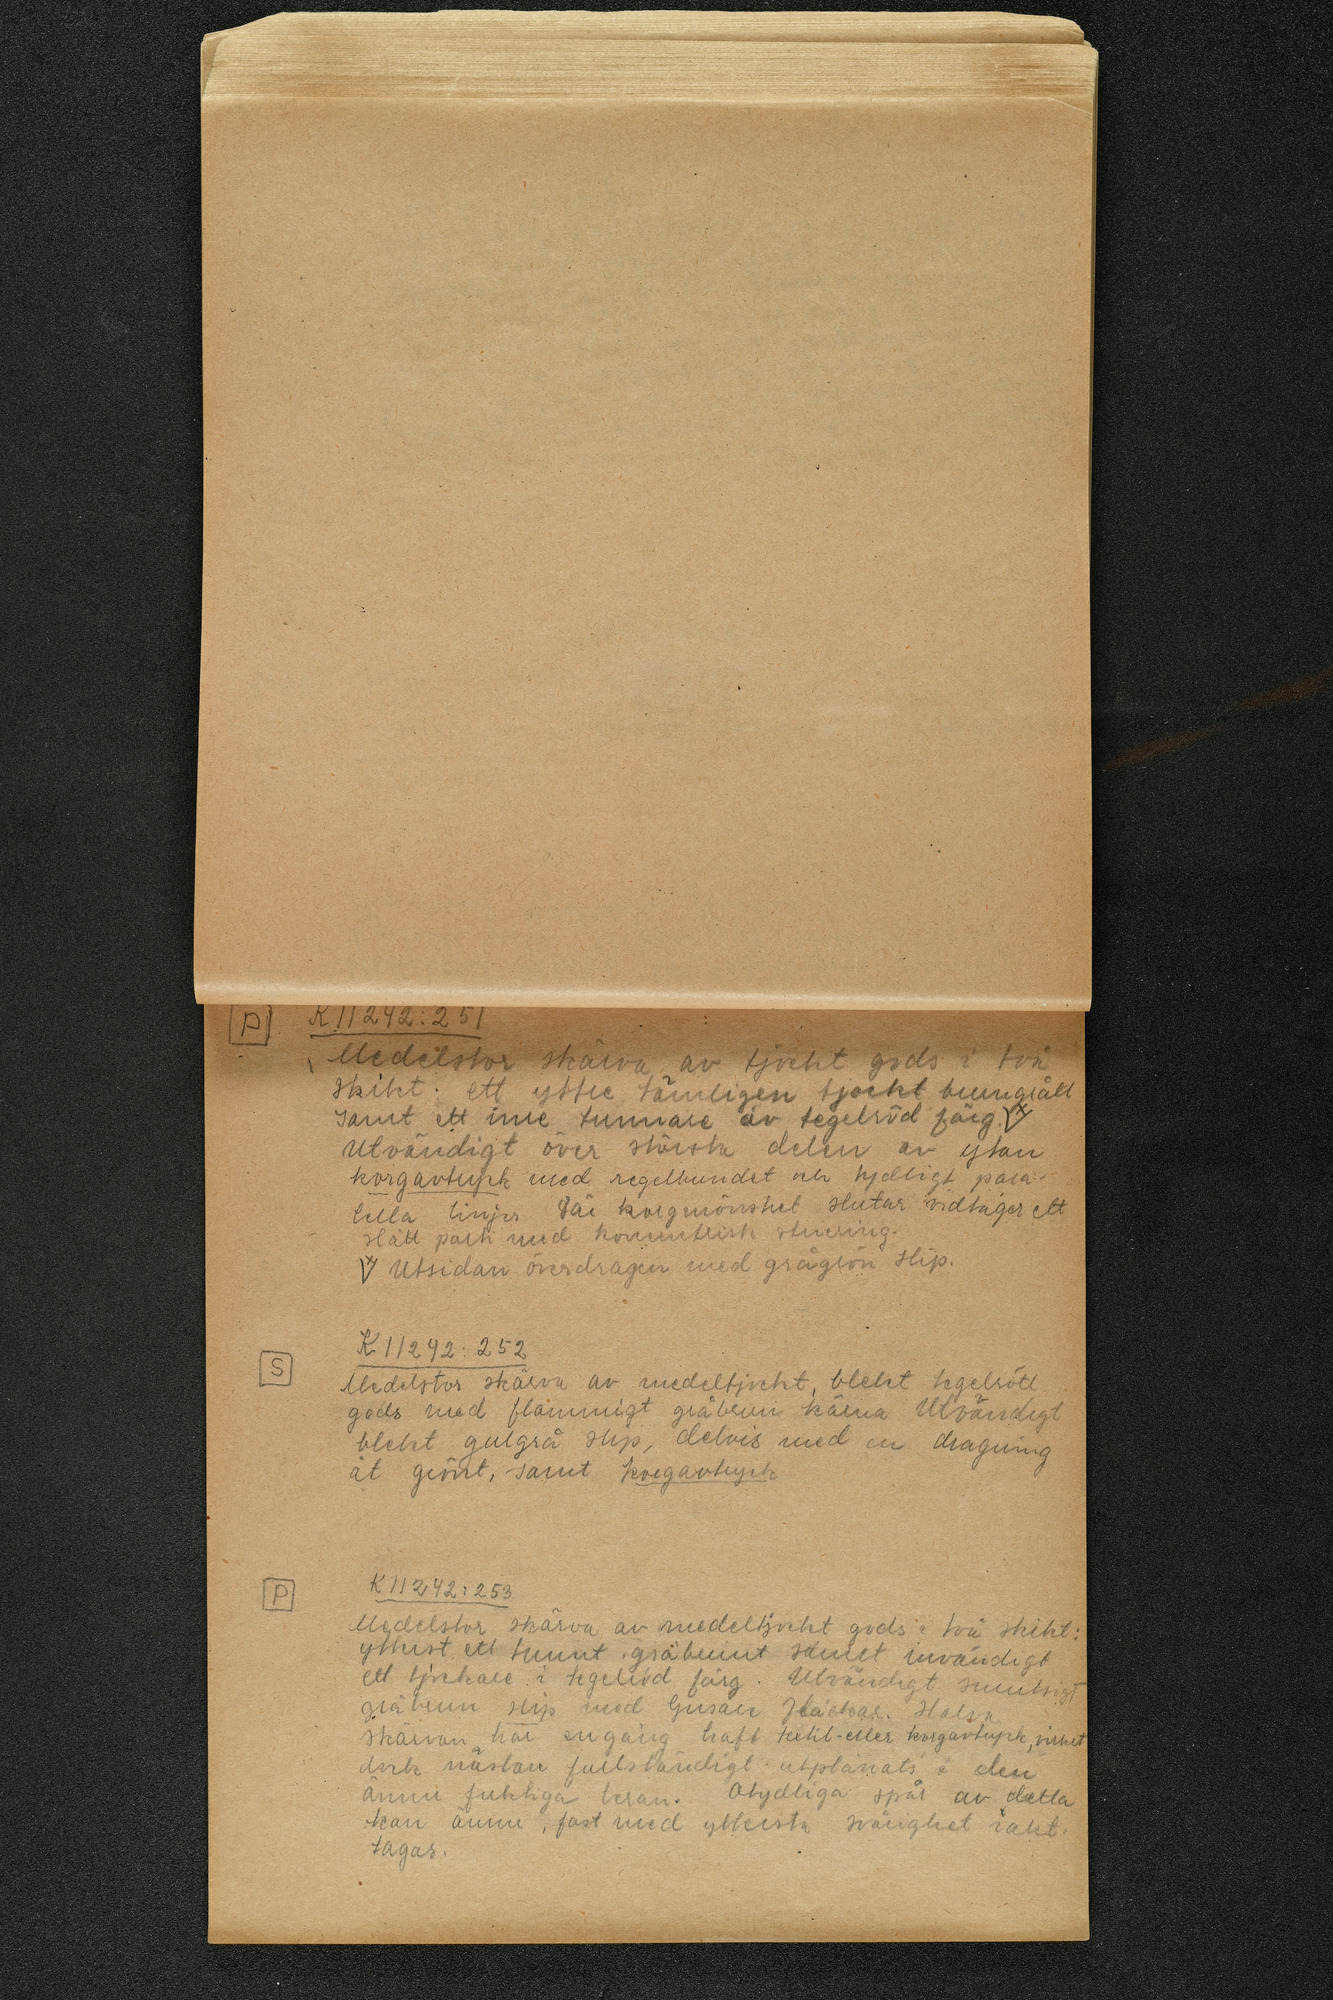 P K 11242:251
Medelstor skärva av tjockt gods i två
skikt: ett yttre tämligen tjockt brungrått
samt ett inre tunnare av tegelröd färg. V
Utvändigt över största delen av ytan
korgavtryck med regelbundet och tydligt paral-
lella linjer Där korgmönstret slutar vidtager ett
slätt parti med koncentrisk striering.
V Utsidan överdragen med grågrön slip.
S K 11242:252
Medelstor skärva av medeltjockt, blekt tegelrött
gods med flammigt gråbrun kärna Utvändigt
blekt gulgrå slip, delvis med en dragning
åt grönt, samt korgavtryck
P K 11242:253
Medelstor skärva av medeltjockt gods i två skikt:
ytterst ett tunnt gråbrunt invändigt
ett tjockare i tegelröd färg. Utvändigt smutsigt
gråbrun slip med ljusare fläckar. Halva
skärvan har en gång haft textil- eller korgavtryck, vilket
dock nästan fullständigt utplånats i den
ännu fuktiga leran. Otydliga spår av detta
kan ännu, fast med yttersta svårighet iakt-
tagas.